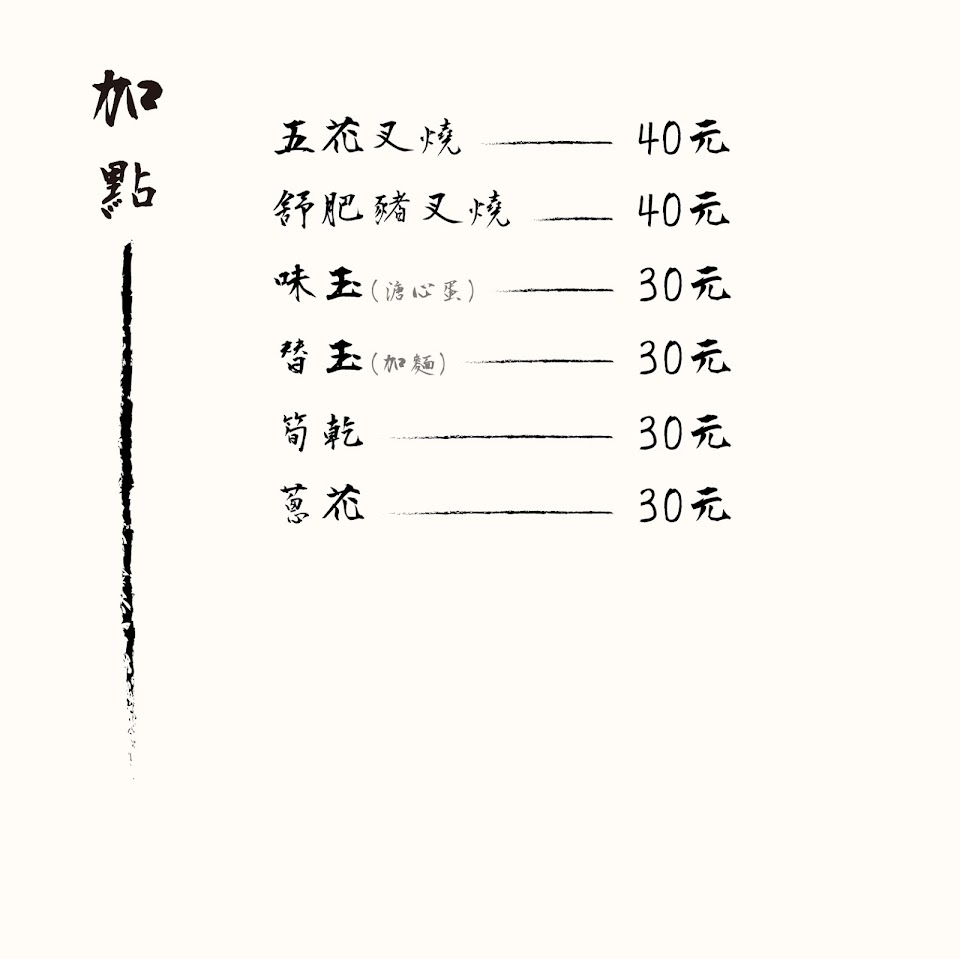 加點
五花叉燒 40元
舒肥豬叉燒 40元
味玉(溏心蛋) 30元
替玉(加麵) 30元
筍乾 30元
蔥花 30元